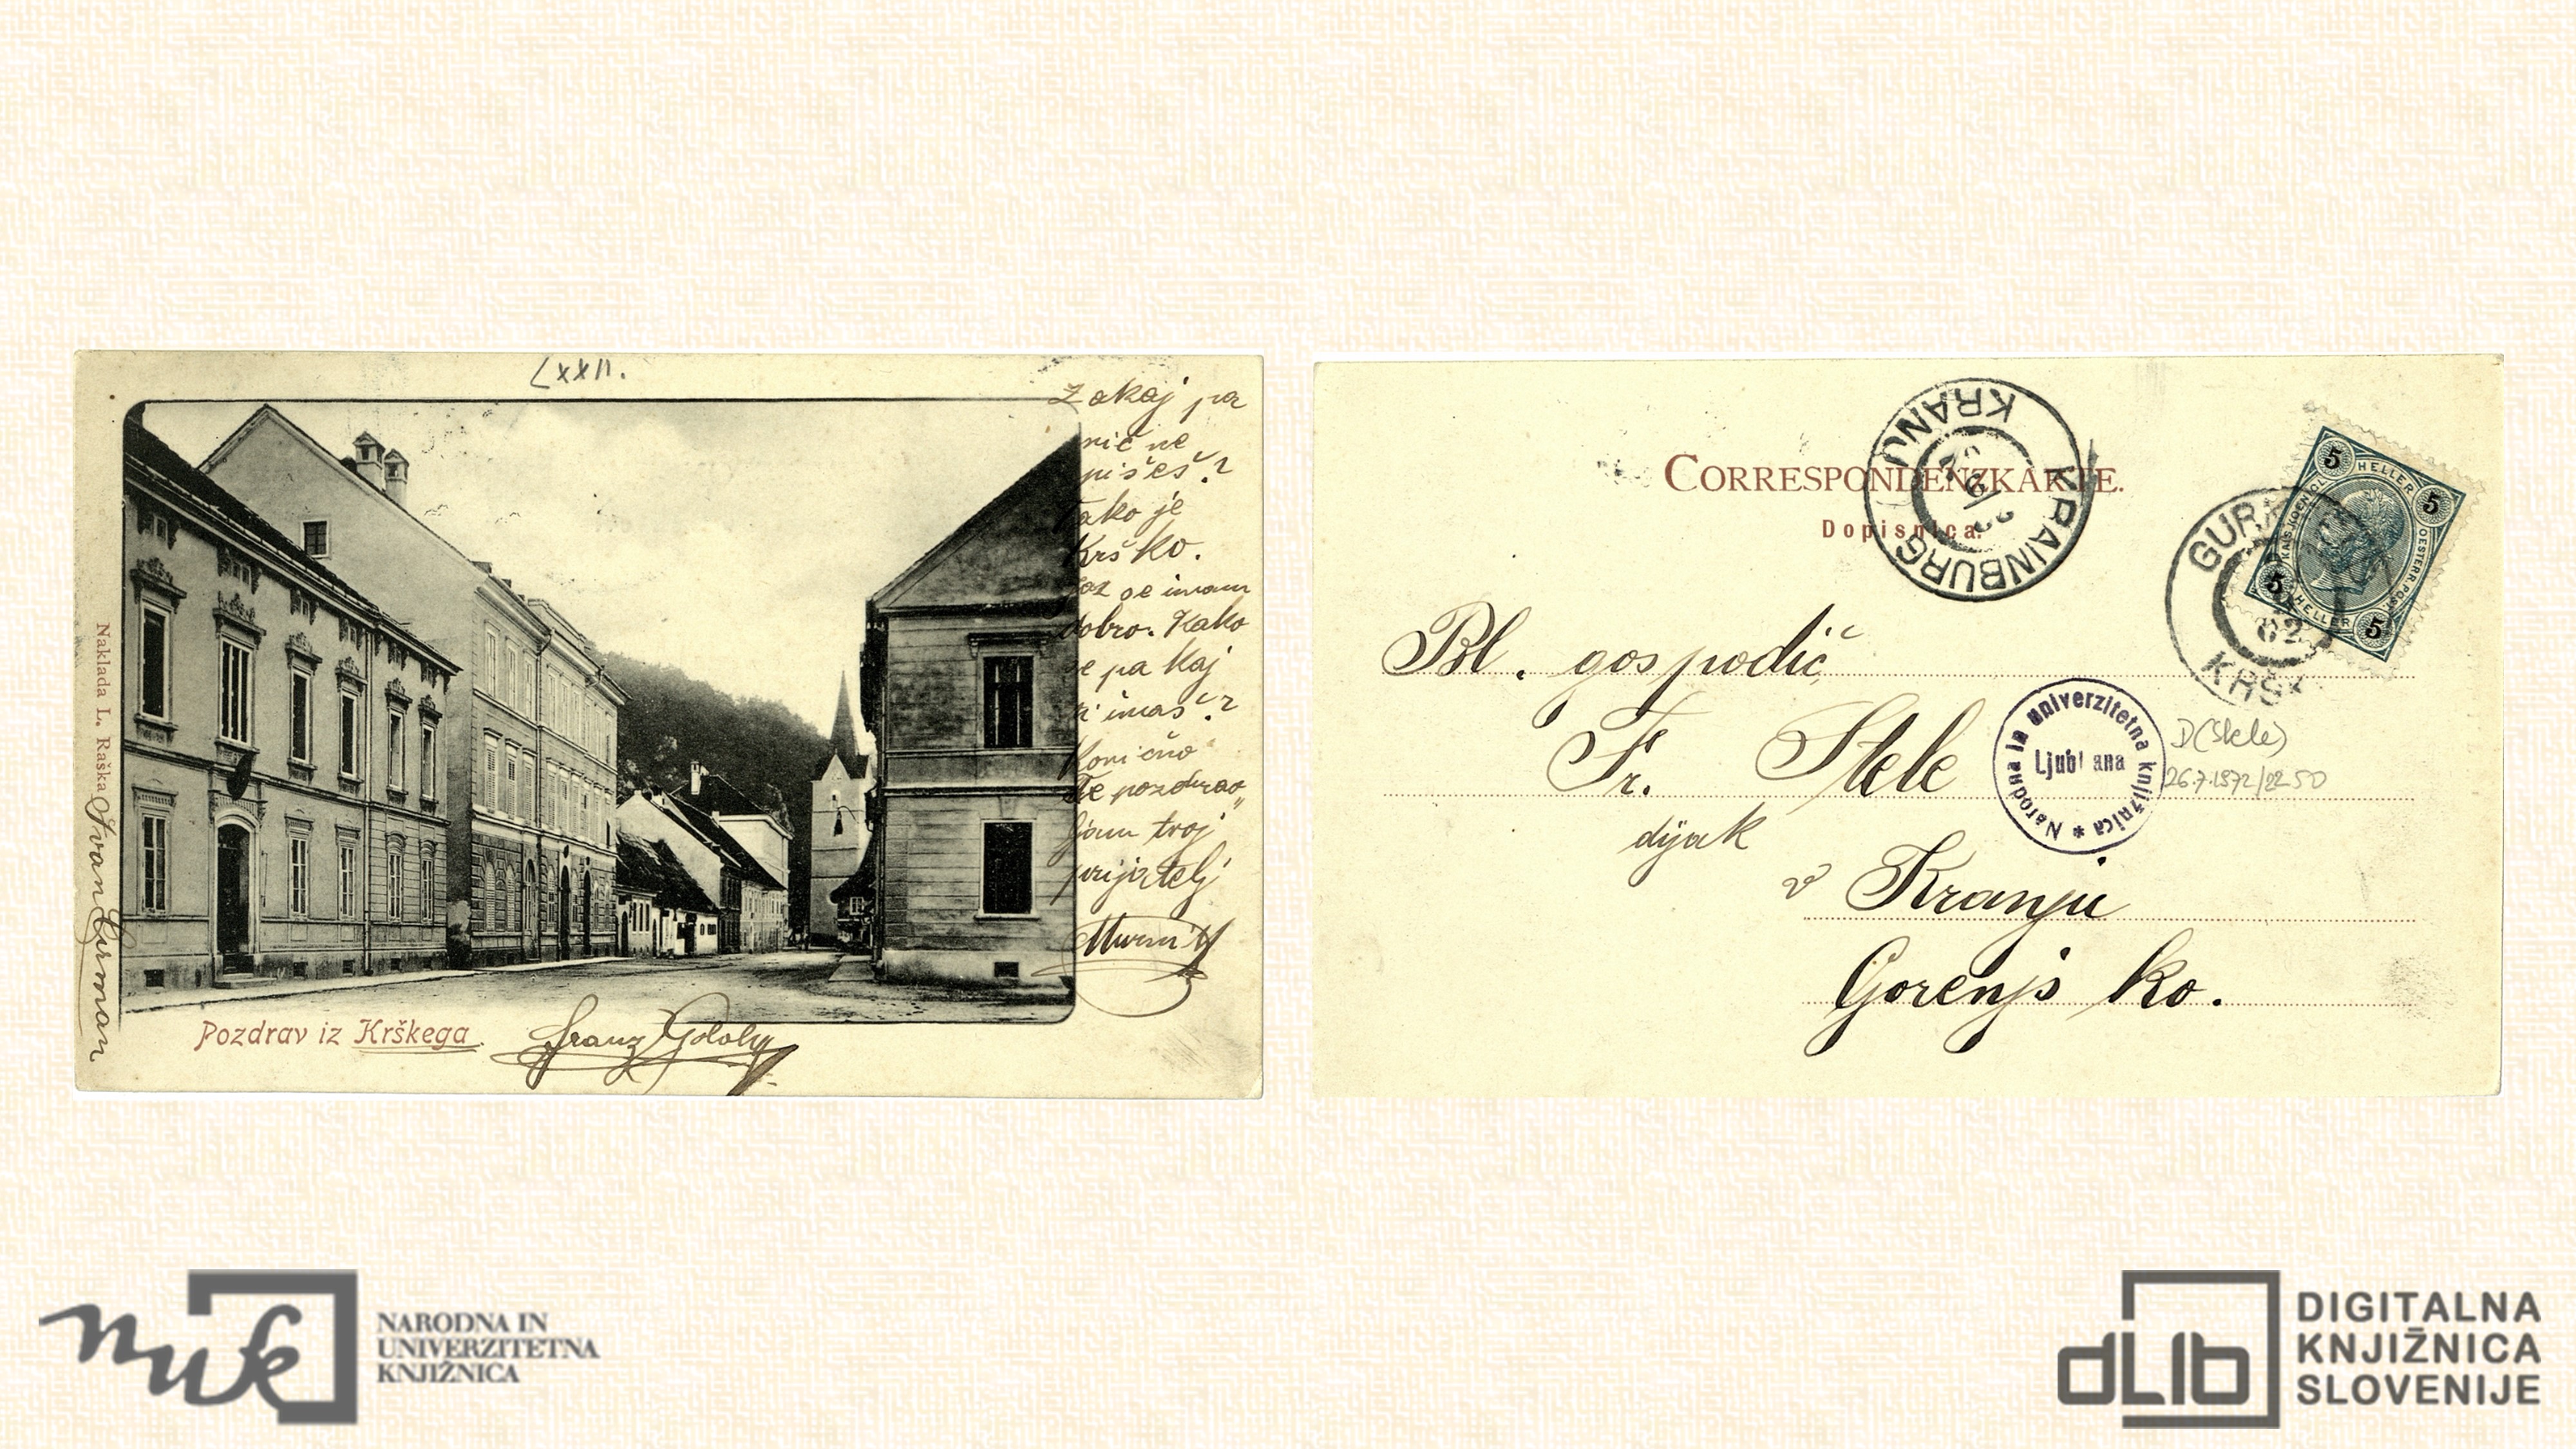 LXXII.
Zakaj pa
nič ne
pišeš?
Tako je
Krško.
Jaz se imam
dobro. Kako
se pa kaj
ti imaš?
Konično
Te pozdrav„
ljam tvoj
prijatelj
Naklada L. Raška
Ivan Curman
Pozdrav iz Krškega.
Franz Golob
CORRESPONDENZKARTE.
Dopisnica.
KRAINBURG
KRANJ
5 HELLER 5
KAIS. KOENIGL.
OESTERR. POST
5 HELLER 5
GURK
02
KRŠK
Bl. gospodič
Fr. Stele
dijak
v Kranju
Gorenjsko.
Narodna in univerzitetna knjižnica *
Ljubljana
D(Stele)
26.7.1972/2250
nuk
NARODNA IN
UNIVERZITETNA
KNJIŽNICA
dLib
DIGITALNA
KNJIŽNICA
SLOVENIJE